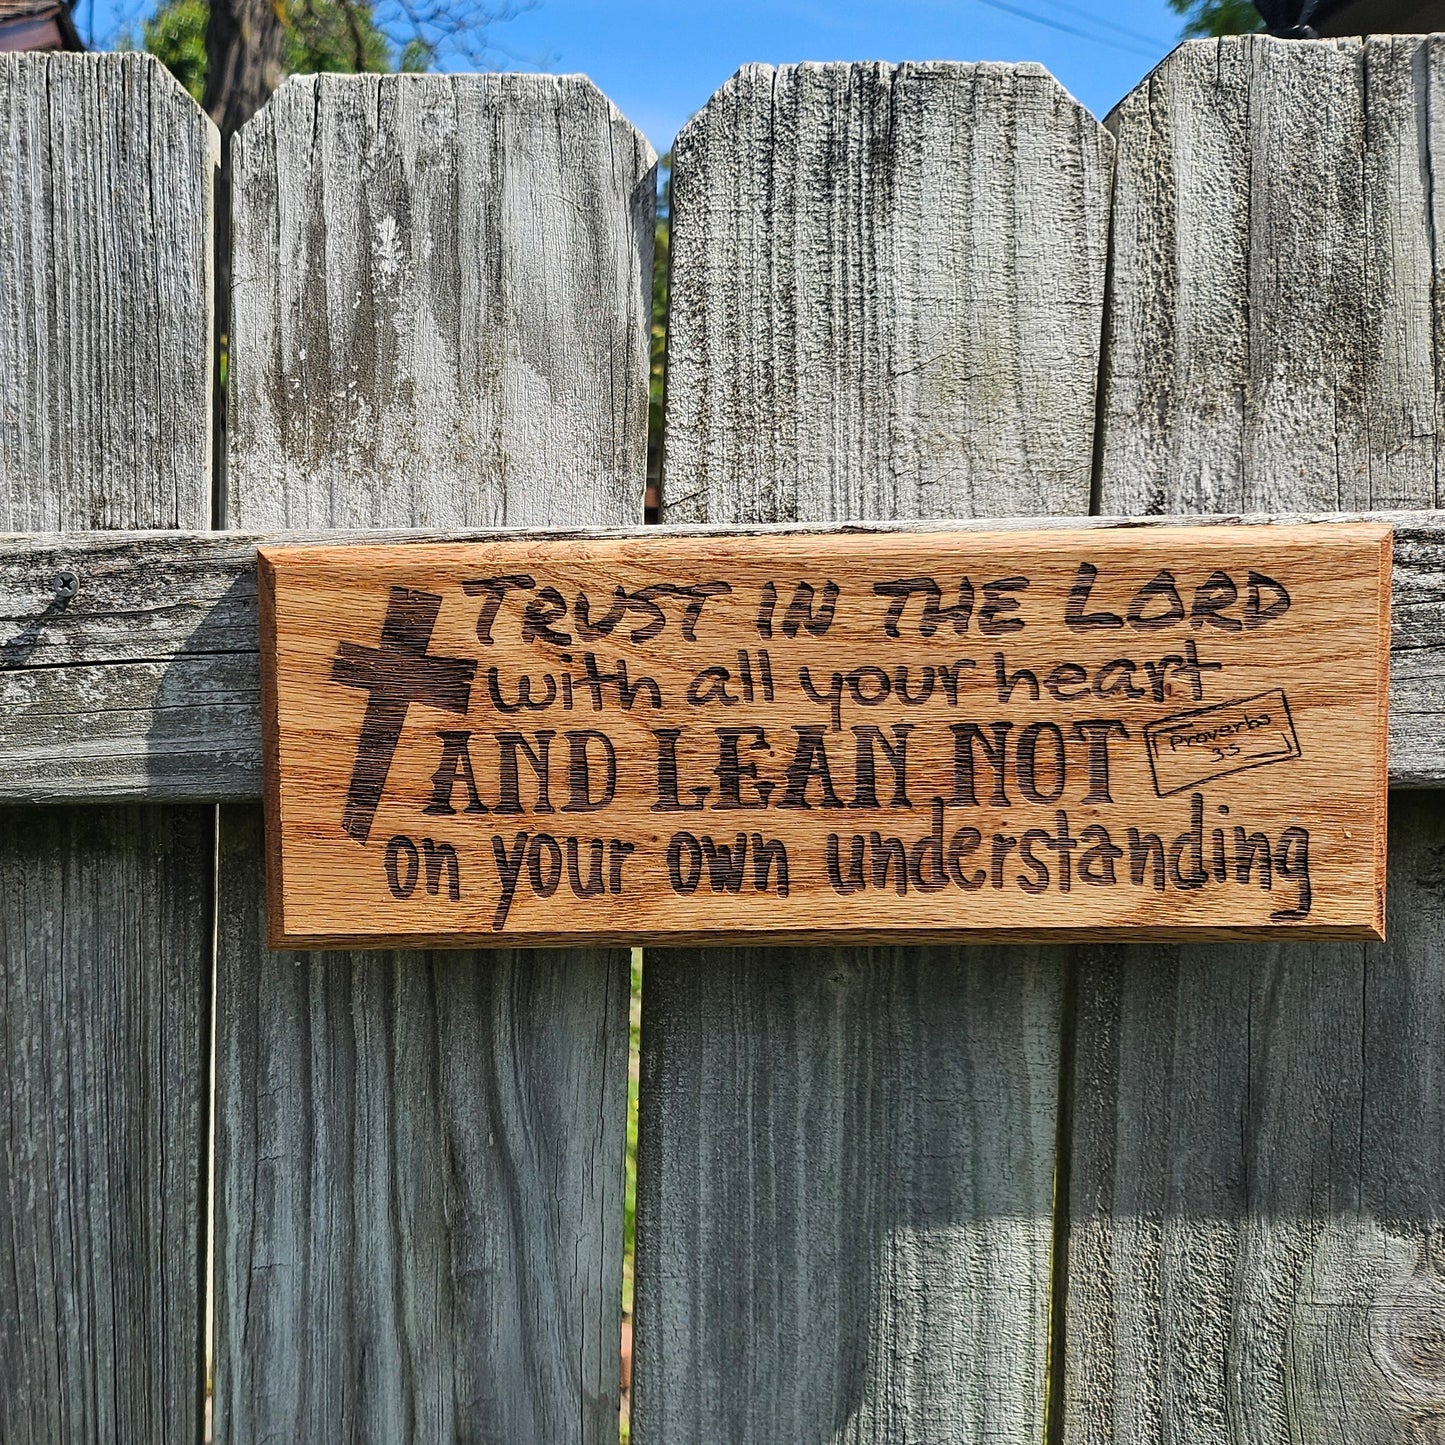 TRUST IN THE LORD
with all your heart
AND LEAN NOT
Proverbs
3:5
on your own understanding